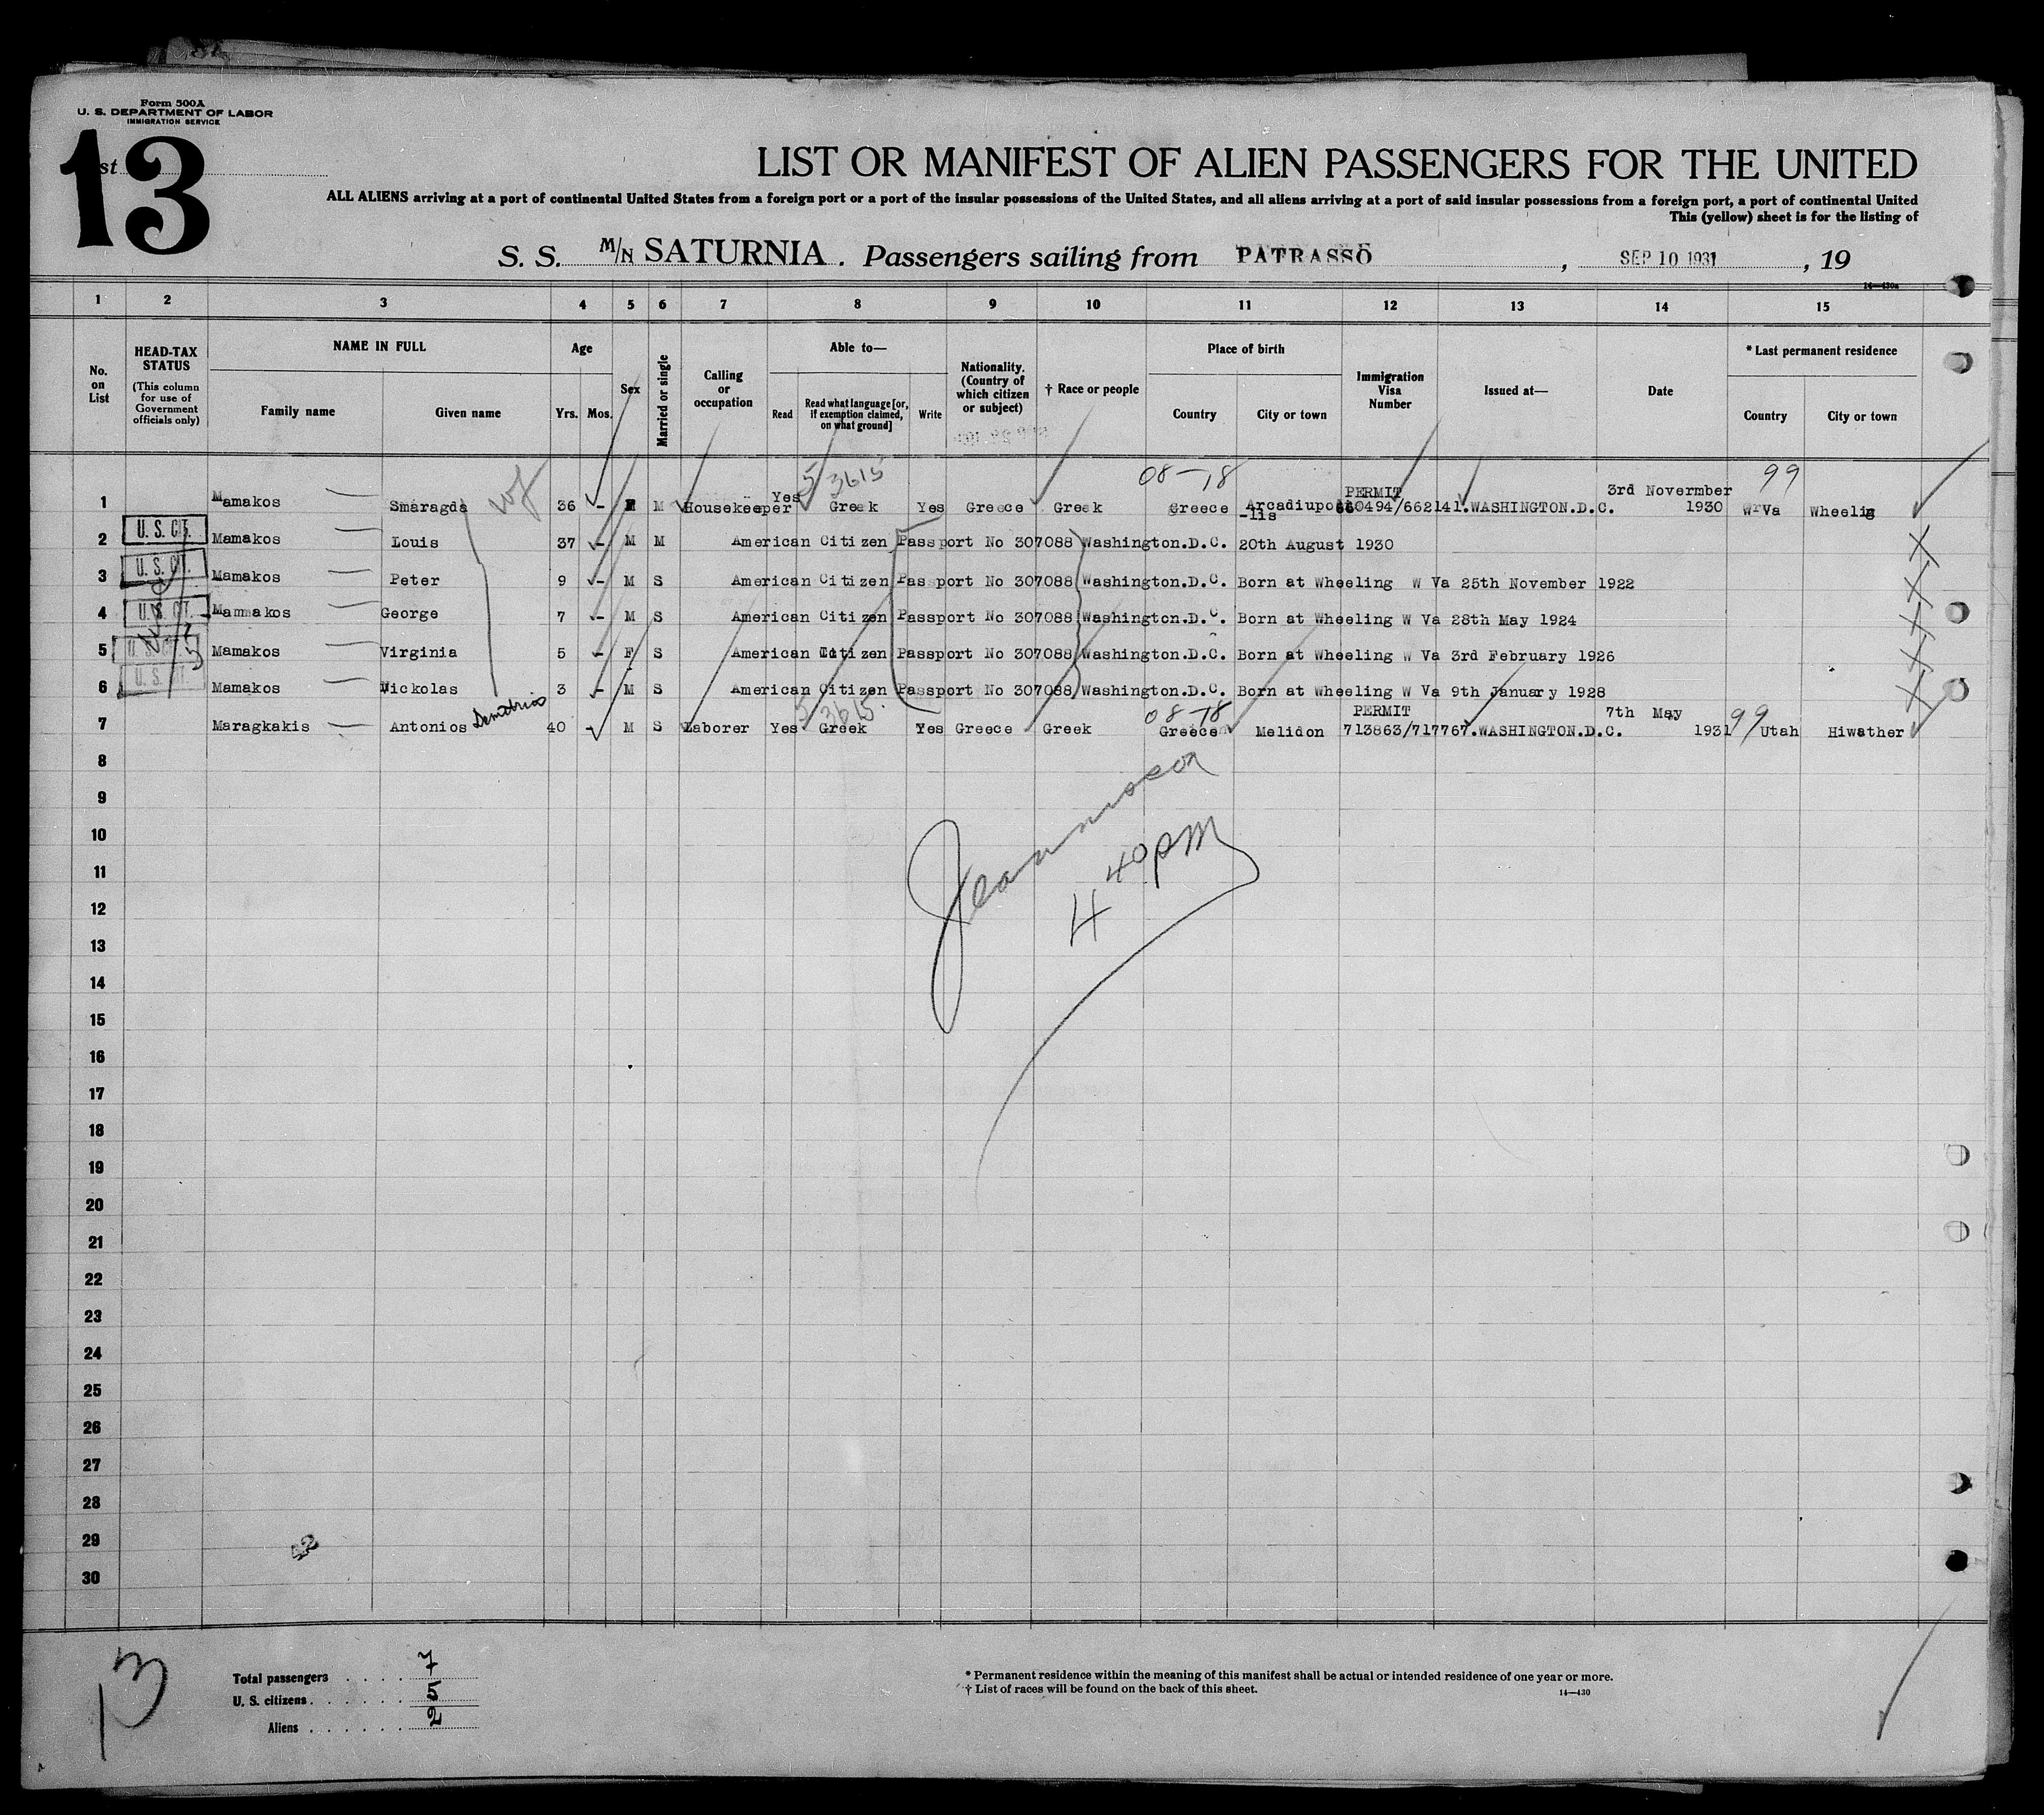 Form 500A
U. S. DEPARTMENT OF LABOR
IMMIGRATION SERVICE
13
st
LIST OR MANIFEST OF ALIEN PASSENGERS FOR THE UNITED
ALL ALIENS arriving at a port of continental United States from a foreign port or a port of the insular possessions of the United States, and all aliens arriving at a port of said insular possessions from a foreign port, a port of continental United
This (yellow) sheet is for the listing of
S. S. M/N SATURNIA. Passengers sailing from PATRASSO, SEP 10 1931, 19
14—430a
1 2 3 4 5 6 7 8 9 10 11 12 13 14 15
No. on List
HEAD-TAX STATUS (This column for use of Government officials only)
NAME IN FULL
Family name Given name
Age
Yrs. Mos.
Sex
Married or single
Calling or occupation
Able to—
Read
Read what language [or, if exemption claimed, on what ground]
Write
Nationality. (Country of which citizen or subject)
† Race or people
Place of birth
Country City or town
Immigration Visa Number
Issued at—
Date
* Last permanent residence
Country City or town
5 3615 08-18 99
1 Mamakos Smaragda wf 36 - M Housekeeper Yes Greek Yes Greece Greek Greece Arcadiupo -lis PERMIT 660494/662141.WASHINGTON.D.C. 3rd Novermber 1930 W Va Wheelig
2 U. S. CIT. Mamakos Louis 37 - M M American Citizen Passport No 307088 Washington.D.C. 20th August 1930 X
3 U. S. CIT. Mamakos Peter 9 - M S American Citizen Passport No 307088 Washington.D.C. Born at Wheeling W Va 25th November 1922 X
4 U. S. CIT. Mamakos George 7 - M S American Citizen Passport No 307088 Washington.D.C. Born at Wheeling W Va 28th May 1924 X
5 U. S. CIT. Mamakos Virginia 5 - F S American Citizen Passport No 307088 Washington.D.C. Born at Wheeling W Va 3rd February 1926 X
6 U. S. CIT. Mamakos Nickolas 3 - M S American Citizen Passport No 307088 Washington.D.C. Born at Wheeling W Va 9th January 1928 X
5 3615. 08-18 99
7 Maragkakis Antonios Demetrios 40 - M S Laborer Yes Greek Yes Greece Greek Greece Melidon PERMIT 713863/717767.WASHINGTON.D.C. 7th May 1931 Utah Hiwather
8
9
10
11
4 40 PM
12
13
14
15
16
17
18
19
20
21
22
23
24
25
26
27
28
29
30
13
Total passengers 7
U. S. citizens 5
Aliens 2
* Permanent residence within the meaning of this manifest shall be actual or intended residence of one year or more.
† List of races will be found on the back of this sheet.
14—430